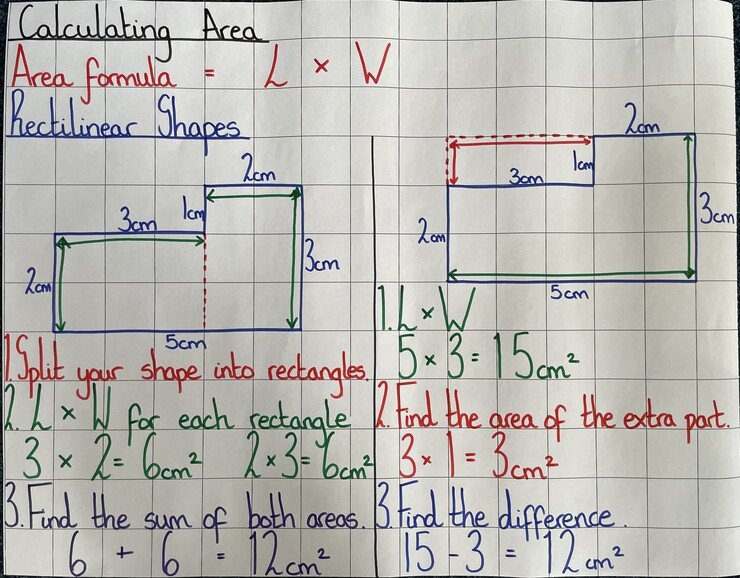 Calculating Area
Area formula = L × W
Rectilinear Shapes
2cm
1cm
3cm
2cm
3cm
5cm
1. Split your shape into rectangles.
2. L × W for each rectangle
3 × 2 = 6cm² 2 × 3 = 6cm²
3. Find the sum of both areas.
6 + 6 = 12cm²
2cm
1cm
3cm
2cm
3cm
5cm
1. L × W
5 × 3 = 15cm²
2. Find the area of the extra part.
3 × 1 = 3cm²
3. Find the difference.
15 - 3 = 12cm²